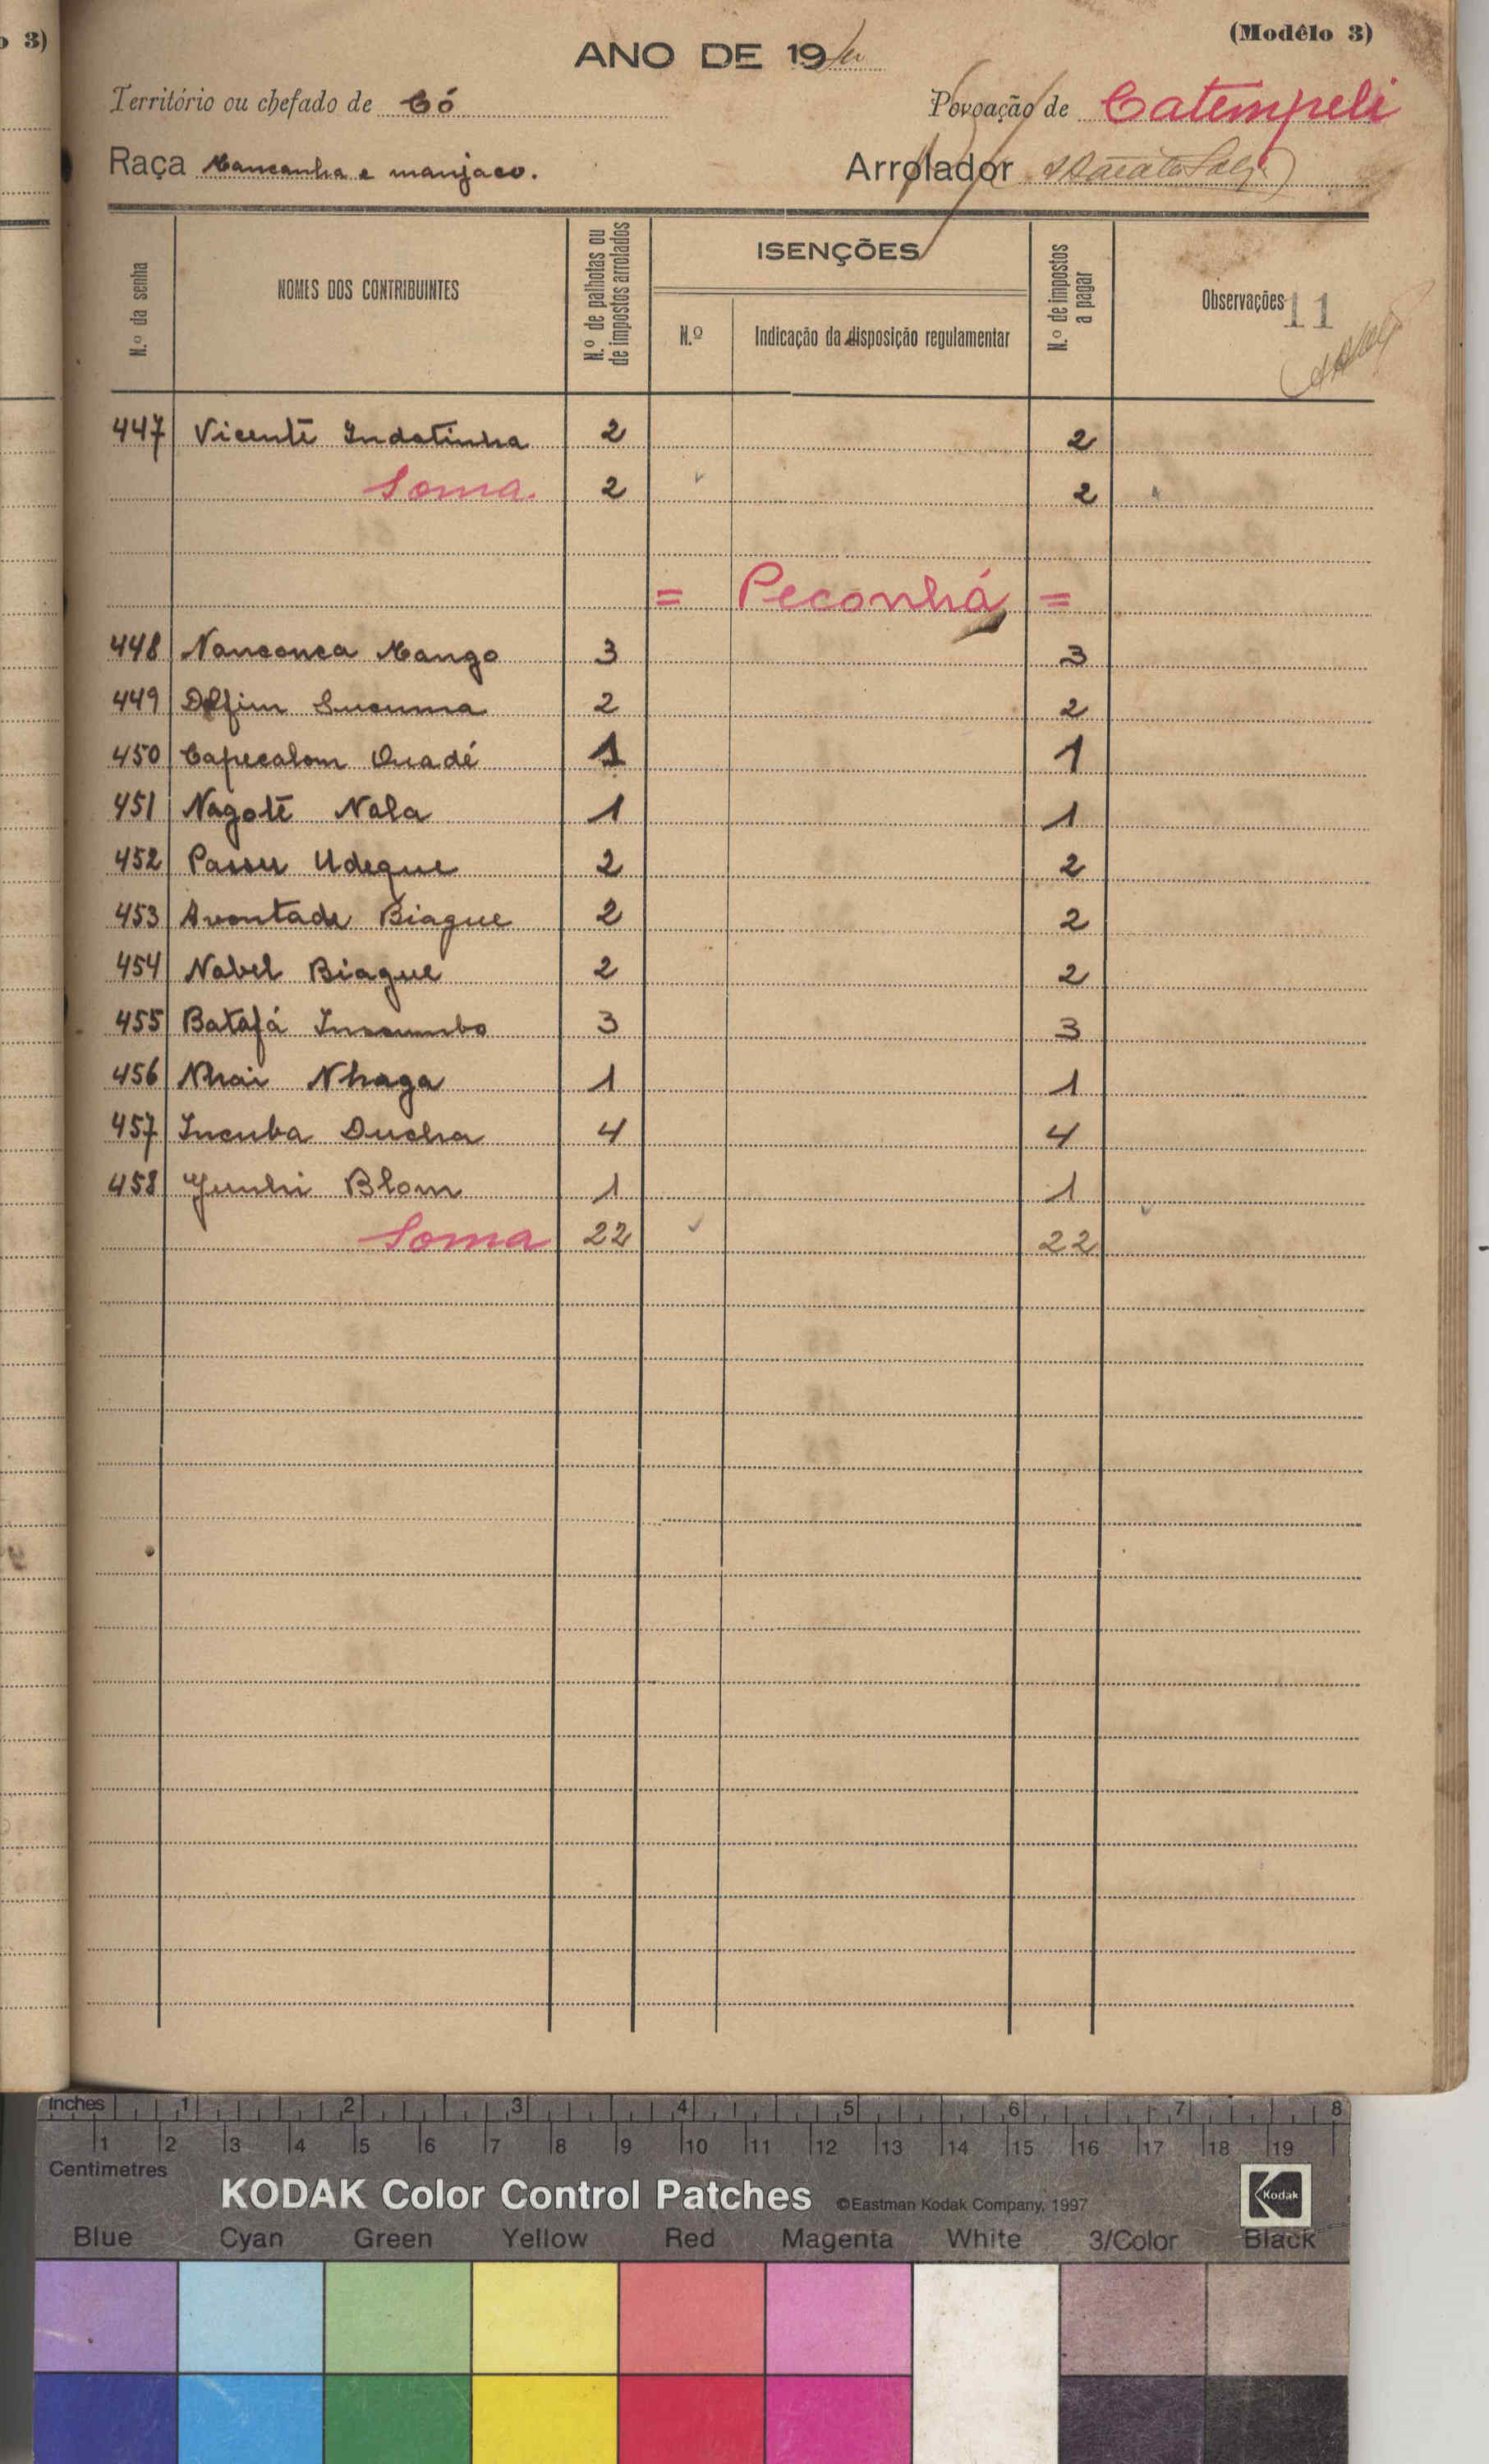 o 3)
(Modêlo 3)
ANO DE 19
Território ou chefado de Có
Povoação de Catempeli
Raça Mancanha e manjaco.
Arrolador
N.º da senha
NOMES DOS CONTRIBUINTES
N.º de palhotas ou de impostos arrolados
ISENÇÕES
N.º
Indicação da disposição regulamentar
N.º de impostos a pagar
Observações
11
447 Vicente Indatinha 2 2
Soma. 2 2
= Peconhá =
448 Nanconca Mango 3 3
449 Delfim Sucuma 2 2
450 Capecalom Quadé 1 1
451 Nagoté Nala 1 1
452 Passu Udeque 2 2
453 Avontade Biague 2 2
454 Nabel Biague 2 2
455 Batafá Insumbo 3 3
456 Nhai Nhaga 1 1
457 Incuba Ducha 4 4
458 Blom 1 1
Soma 22 22
Inches 1 2 3 4 5 6 7 8
1 2 3 4 5 6 7 8 9 10 11 12 13 14 15 16 17 18 19
Centimetres
KODAK Color Control Patches ©Eastman Kodak Company, 1997 Kodak
Blue Cyan Green Yellow Red Magenta White 3/Color Black